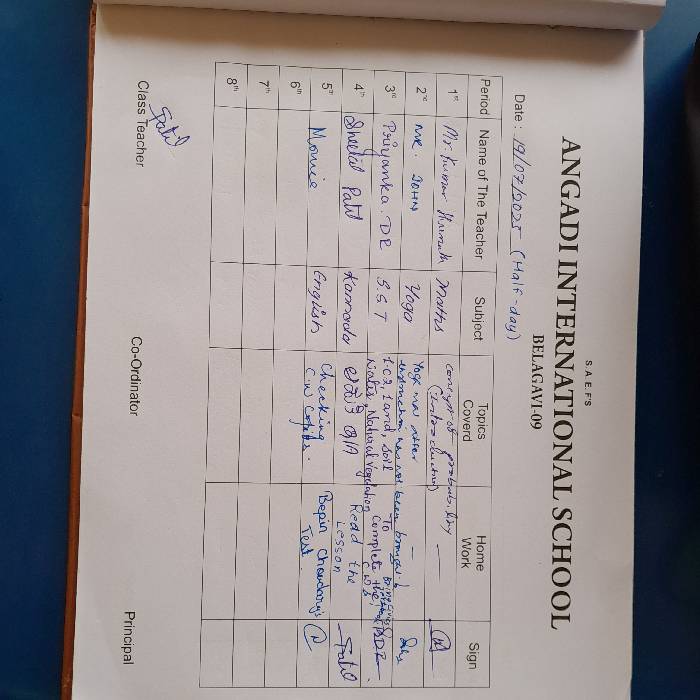 S.A.E.F'S
ANGADI INTERNATIONAL SCHOOL
BELAGAVI-09
Date : 19/07/2025 (Half-day)
Period Name of The Teacher Subject Topics Coverd Home Work Sign
1st Mr. Kumar Maths concept of probability (Introduction) —
2nd MR. JOHN Yoga Yoga was after instruction was not been
3rd Priyanka. DR S.S.T L-02, Land, Soil Water, Natural Vegetation To Complete the C.W
4th Sheetal Patil Kannada Q/A Read the Lesson Patil
5th Mounie English Checking C.W Copies. Bepin Choudary's Test
6th
7th
8th
Patil
Class Teacher Co-Ordinator Principal